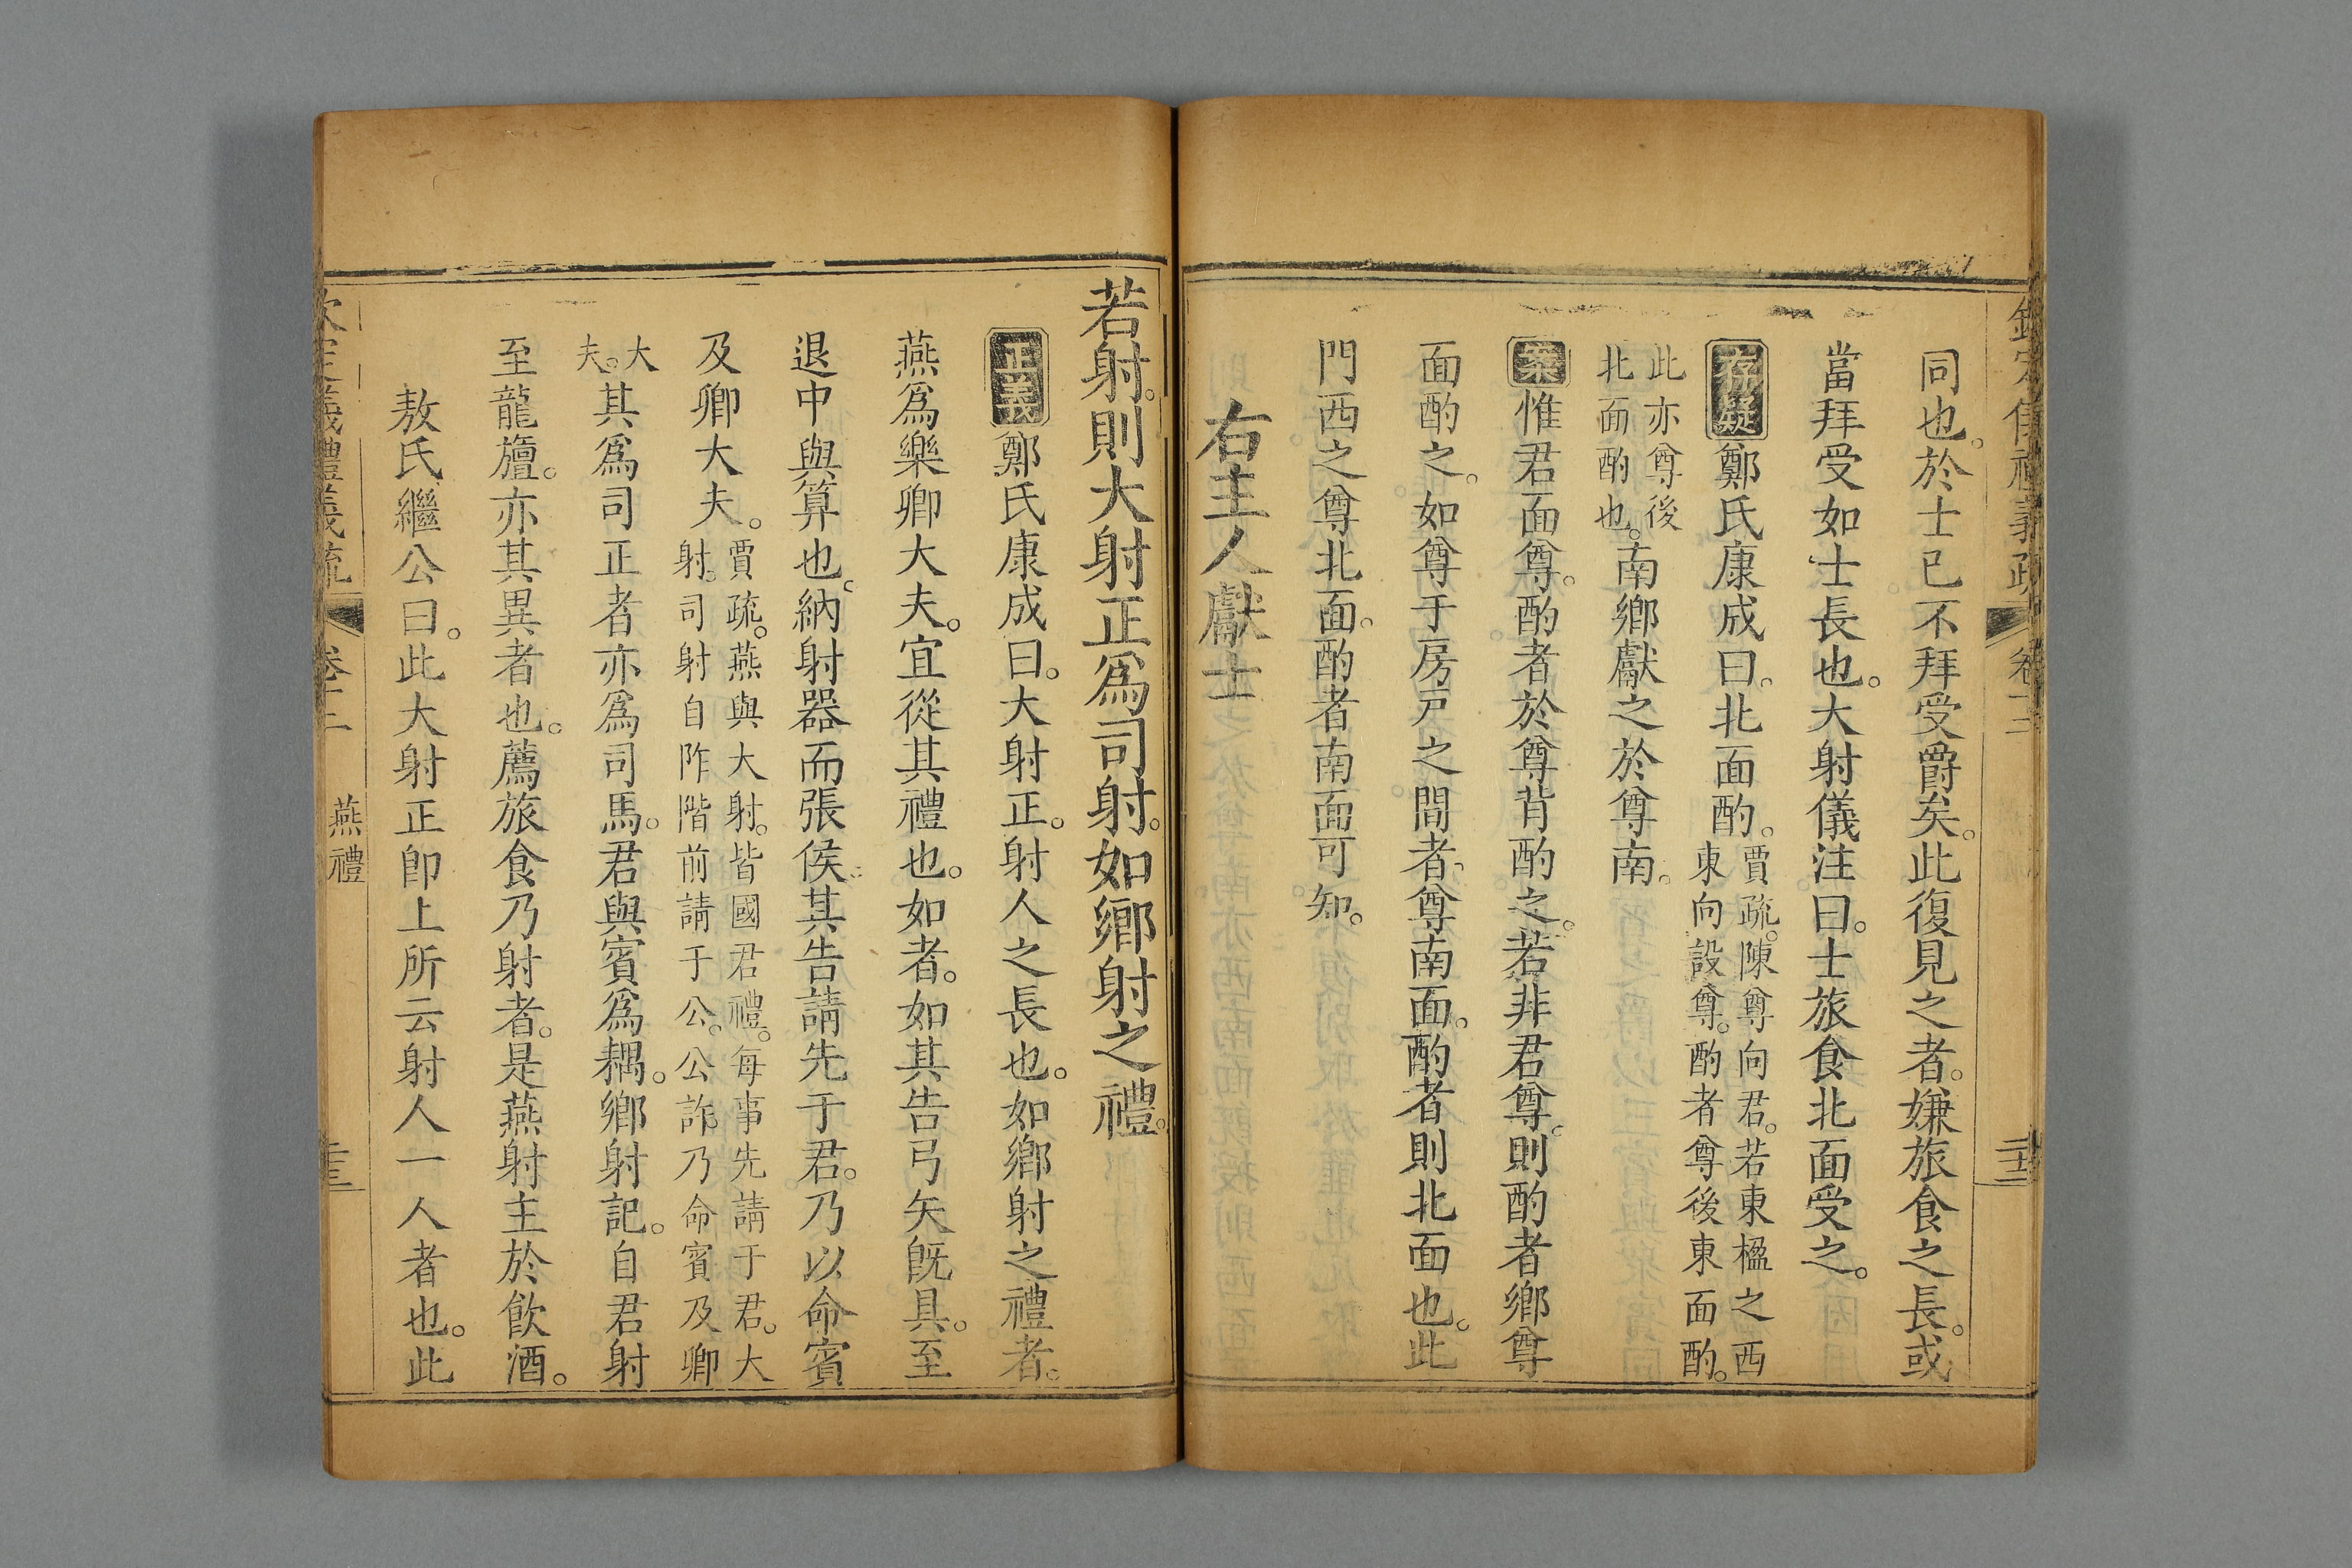 同也。於士已不拜受爵矣。此復見之者。嫌旅食之長。或
當拜受如士長也。大射儀注曰。士旅食北面受之。
存疑鄭氏康成曰。北面酌。賈疏。陳尊向君。若東楹之西
東向設尊。酌者尊後東面酌。
此亦尊後
北面酌也。南鄉獻之於尊南。
案惟君面尊。酌者於尊背酌之。若非君尊。則酌者鄉尊
面酌之。如尊于房戶之間者。尊南面。酌者則北面也。此
門西之尊北面。酌者南面可知。
右主人獻士
若射。則大射正爲司射。如鄉射之禮。
正義鄭氏康成曰。大射正。射人之長也。如鄉射之禮者。
燕爲樂卿大夫。宜從其禮也。如者。如其告弓矢旣具。至
退中與算也。納射器而張侯。其告請先于君。乃以命賓
及卿大夫。賈疏。燕與大射。皆國君禮。每事先請于君。大
射。司射自阼階前請于公。公許。乃命賓及卿
大
夫。其爲司正者亦爲司馬。君與賓爲耦。鄉射記。自君射
至龍旜。亦其異者也。薦旅食乃射者。是燕射主於飲酒。
敖氏繼公曰。此大射正卽上所云射人一人者也。此
燕禮